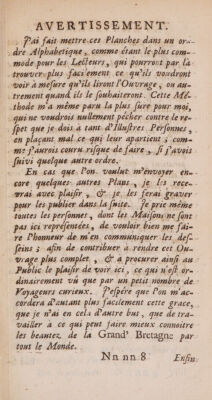 AVERTISSEMENT.
J'ai fait mettre ces Planches dans un or-
dre Alphabetique, comme étant le plus com-
mode pour les Lecteurs, qui pourront par là
trouver plus facilement ce qu'ils voudront
voir à mesure qu'ils liront l'Ouvrage, ou au-
trement quand ils le souhaiteront. Cette Mé-
thode m'a même paru la plus sure pour moi,
qui ne voudrois nullement pécher contre le re-
spet que je dois a tant d'Illustres Personnes,
en plaçant mal ce qui leur apartient; com-
me j'aurois couru risque de faire, si j'avois
suivi quelque autre ordre.
En cas que l'on voulut m'envoyer en-
core quelques autres Plans, je les rece-
vrai avec plaisir, & je les ferai graver
pour les publier dans la suite. Je prie même
toutes les personnes, dont les Maisons ne sont
pas ici représentées, de vouloir bien me fai-
re l'honneur de m'en communiquer les des-
seins; afin de contribuer à rendre cet Ou-
vrage plus complet, & à procurer ainsi au
Public le plaisir de voir ici, ce qui n'est or-
dinairement vû que par un petit nombre de
Voyageurs curieux. J'espére que l'on m'ac-
cordera d'autant plus facilement cette grace,
que je n'ai en cela d'autre but, que de tra-
vailler à ce qui peut faire mieux connoitre
les beautez de la Grand' Bretagne par
tout le Monde.
Nn nn 8 Enfin